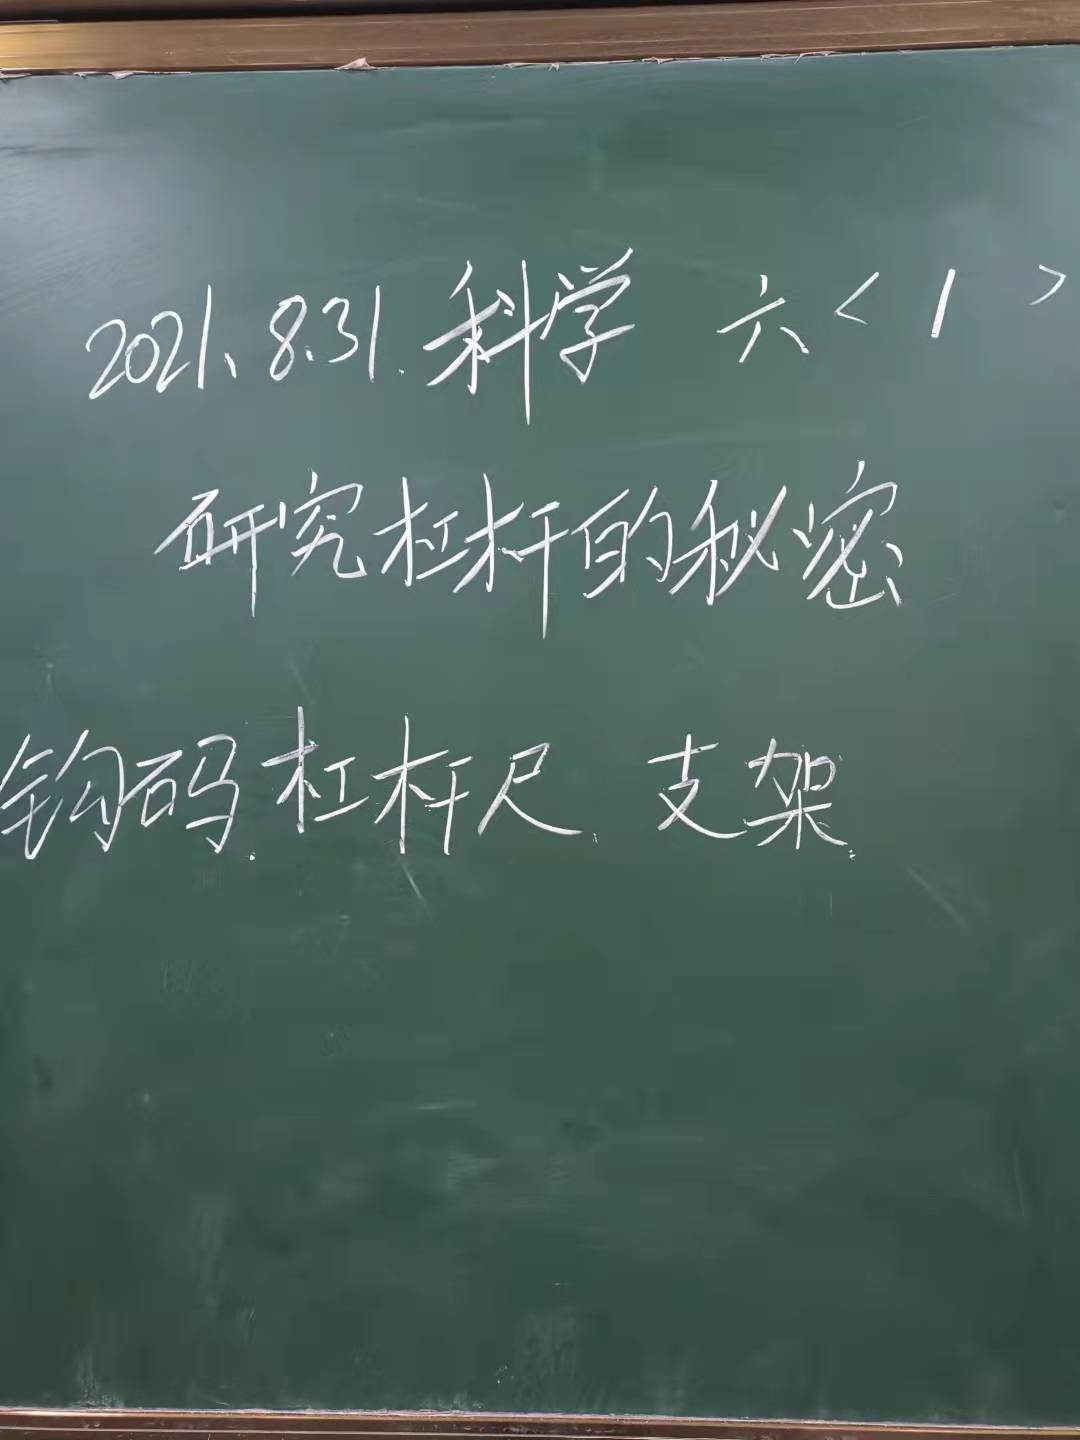 2021.8.31.科学 六<1>
研究杠杆的秘密
钩码.杠杆尺.支架.